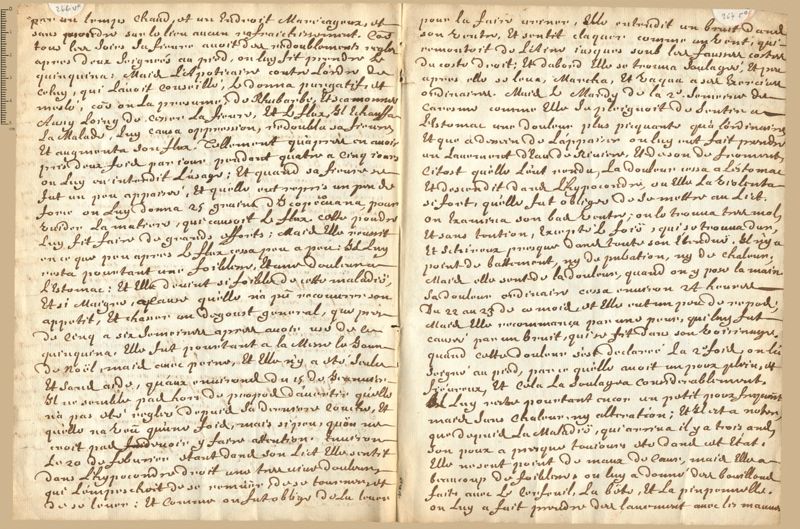 266 v°
par un temps chaud, et un Endroit Marécageux, et
sans prendre sur le lieu aucun rafraichissement. Cos
tous les soirs sa fieure auoit des redoublements reglez
apres deux seignées au pied, on luy fit prendre Le
quinquina: Mais L'Apoticaire contre L'ordre de
Celuy, qui L'auoit conseillé, Le donna purgatif, et
meslé, cos on La presume, de Rhubarbe, Et scamonnée
Aussy Loing de cesser La fieure, Et Le flux, Et Echauffa
La Malade, Luy causa oppression, redoubla sa fieure,
Et augmenta son flux. Tellement qu'apres en auoir
pris deux fois par iour pendant quatre a Cinq iours
on Luy en interdit L'usage: Et quand sa fieure se
fut un peu appaisée, Et quelle eut repris un peu de
force on Luy donna 25 grains d'Ecopécuana pour
vuider La matiere, qui causoit Le flux. Cette poudre
Luy fit faire de grands efforts: Mais Elle reussit
en ce que peu apres Le flux cessa peu a peu: Il Luy
resta pourtant une foiblesse, Et une douleur a
L'Estomac: Et Elle deuint si foible de cette maladie,
Et si Maigre, a cause quelle n'a pu recouurer son
appetit, Et chasser un degoust general, que pres
de Cinq a six semaines apres auoir usé de Ce
quinquina. Elle fut pourtant a la Messe le Jour
de Noël, mais auec peine, Et Elle n'y a eté seule
Et sans aide, qu'aux enuirons du 15 de Januier.
Il ne semble pas hors de propos d'auertir quelle
n'a pas eté reglée depuis sa derniere Couche, Et
quelle n'a veu qu'une fois, mais si peu; qu'on ne
croit pas deuoir y faire attention. Enuiron
Le 20 de feburier etant dans son Lict Elle sentit
dans L'hypocondre droit une tres uiue douleur,
qui L'empeschoit de se remuër de se tourner, et
de se leuer: Et Comme on fut obligé de La leuer
267 r°
pour La faire uriner, Elle entendit un bruit dans
son Ventre, Et sentit claquer comme un Vent, qui
remontoit de L'Aine iusques sous les fausses costes
du coste droit; Et dabord Elle se trouua soulagée, Et peu
apres elle se leua, Marcha, Et vaqua a ses Exercices
ordinaires. Mais Le Mardy de la 2e semaine de
Caresme comme Elle se pleignoit de sentir a
L'Estomac une douleur plus piquante qu'a L'ordinaire,
Et que a dessein de L'appaiser on luy eut fait prendre
un Lauement d'Eau de Riuiere, Et de son de froment,
Citost quelle L'eut rendu, La douleur cessa a L'Estomac
Et descendit dans L'hypocondre, ou Elle La Violenta
si fort, quelle fut obligée de se mettre au Lict.
on Examina son bas Ventre; on Le trouua tres mol,
Et sans tention, Excepté Le foïe, qui se trouua dur,
Et schireux presque dans toute son Etendüe. Il n'y a
point de battement, ny de pulsation, ny de chaleur,
Mais elle sent de la douleur, quand on y pose la main
sa douleur ordinaire cessa enuiron 24 heures
Du 22 au 23 de ce mois, et Elle eut un peu de repos;
Mais Elle recommança par une peur, qui luy fut
causée par un bruit, qui se fit dans son Voisinage,
quand cette douleur s'est declarée La 2e fois, on l'a
seignée au pied, parce quelle auoit un poux plein, et
fieureux, Et Cela La soulagea considerablement,
Il Luy reste pourtant encor un petit poux frequent
mais sans chaleur ny alteration; Et Il est a noter,
que depuis La Maladie, qui arriua il y a trois ans,
son poux a presque toujours eté dans cet Etat:
Elle ne sent point de maux de Cœur, mais Elle a
beaucoup de foiblesse; on luy a donné des bouillons
faits auec Le Cerfeuil, La bête, Et La pimpenelle.
on Luy a fait prendre des Lauements auec les mauues